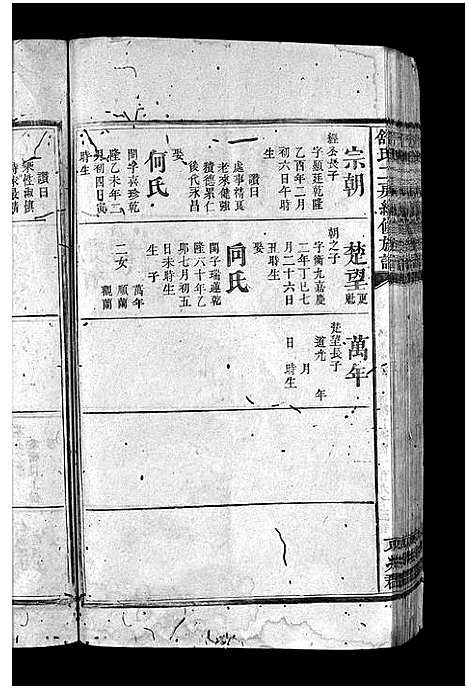 宗朝
經丕長子
字顯廷乾隆
乙酉年二月
初六日午時
生
贊曰
處事精良
老來健強
積德累仁
後代永昌
娶
何氏
閏孚喜珍乾
隆乙未年二
月初四日寅
時生
楚望
更
朝之子
字衡九嘉慶
二年丁巳七
月二十六日
丑時生
娶
向氏
閏子瑞蓮乾
隆六十年乙
卯七月初五
日未時生
生子
萬年
二女
順蘭
觀蘭
萬年
楚望長子
道光 年
月
日 時生
贊曰
秉性淑慎